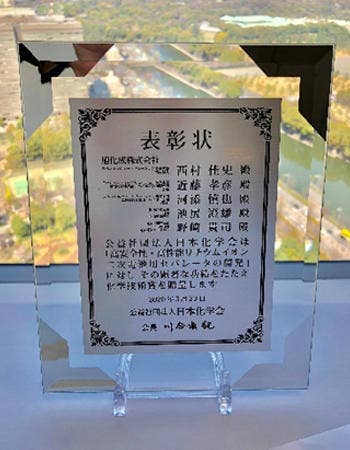 表彰状
旭化成株式会社
西村 佳史 殿
近藤 孝彦 殿
河添 慎也 殿
殿
野﨑 貴司 殿
公益社団法人日本化学会は
「高安全性・高性能リチウムイオン
二次電池用セパレータの開発」
に対し その顕著な功績をたたえ
化学技術賞を贈呈します
2020年3月23日
公益社団法人日本化学会
会長 川合眞紀